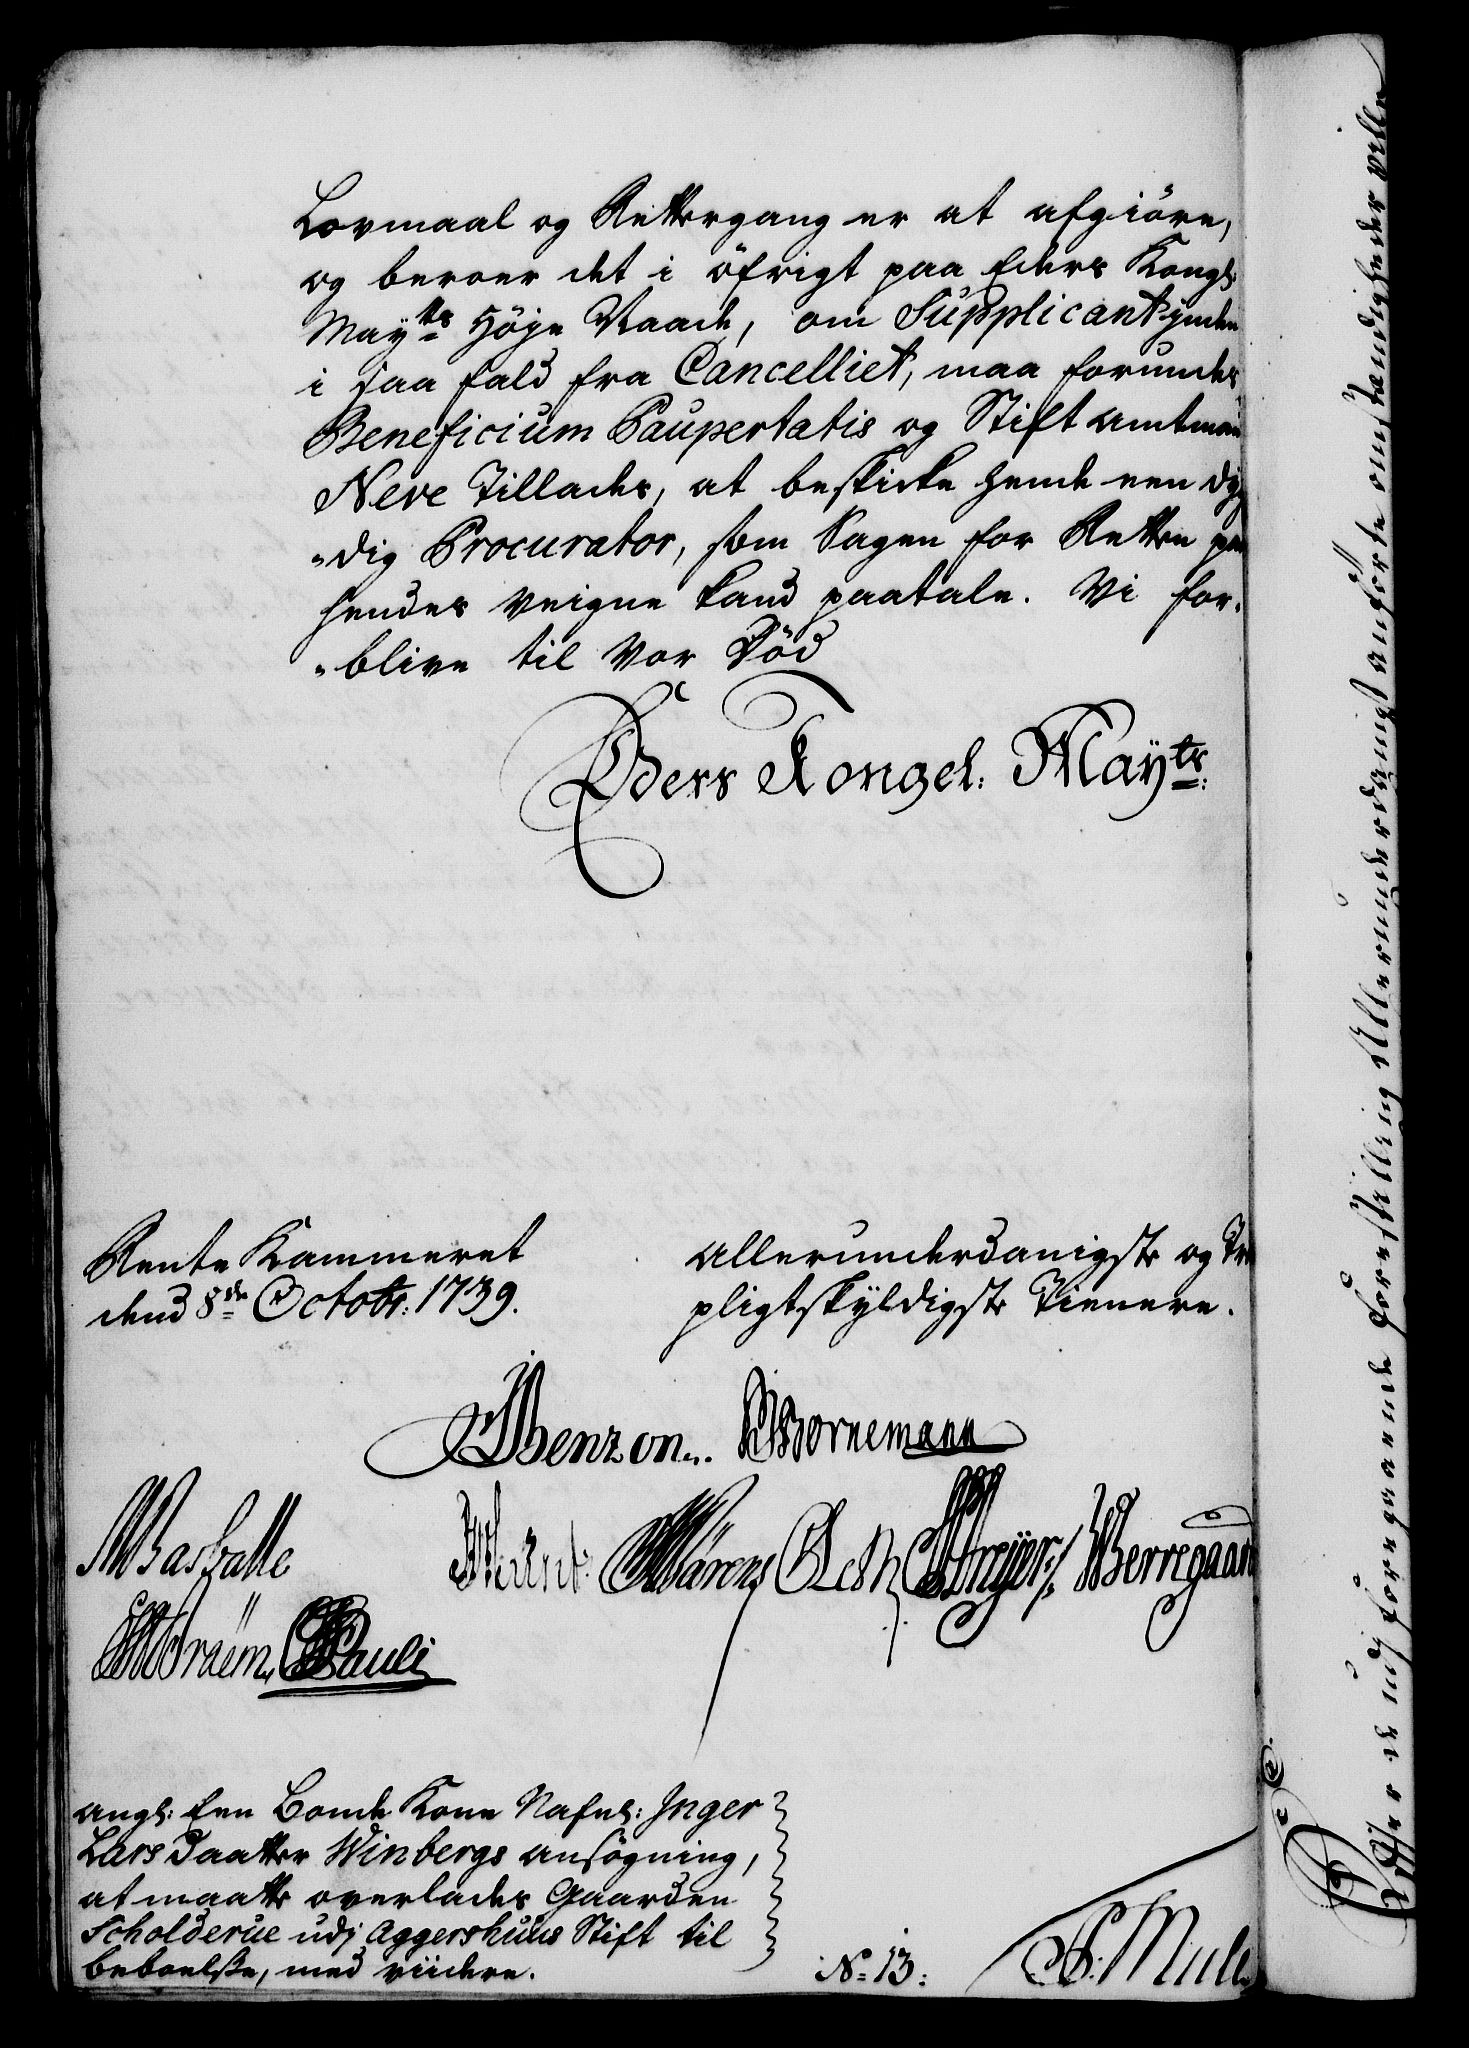 Lovmaal og Rettergang er at afgiöre,
og beroer det i öfrigt paa Eders Kongl:
Mayts Höje Naade, om Supplicantjnden
i saa fald fra Cancelliet, maa forundes
Beneficium Paupertatis og Stift Amtmand
Neve Tillades, at beskicke hende een dyg
"dig Procurator, som Sagen for Retten paa
hendes veigne kand paatale. Vi for-
"blive til Vor Död
Eders Kongel: Mayts:
Rente Kammeret
dend 8de Octobr: 1739.
allerunderdanigste og Tro
pligtskyldigste Tienere.
Benzon. Bornemann
Basballe
Meyer Berregaard
Braëm, Pauli
angl: Een Bonde Kone Nafnl: Jnger
Lars Daatter Winbergs ansögning,
at maatte overlades Gaarden
Scholderue udj Aggershuus Stift til
beboelße, med viidere.
No 13:
P: Mull
Efter de udj foregaaende forestilling Allerunderdanigst anförte omstændigheder ville